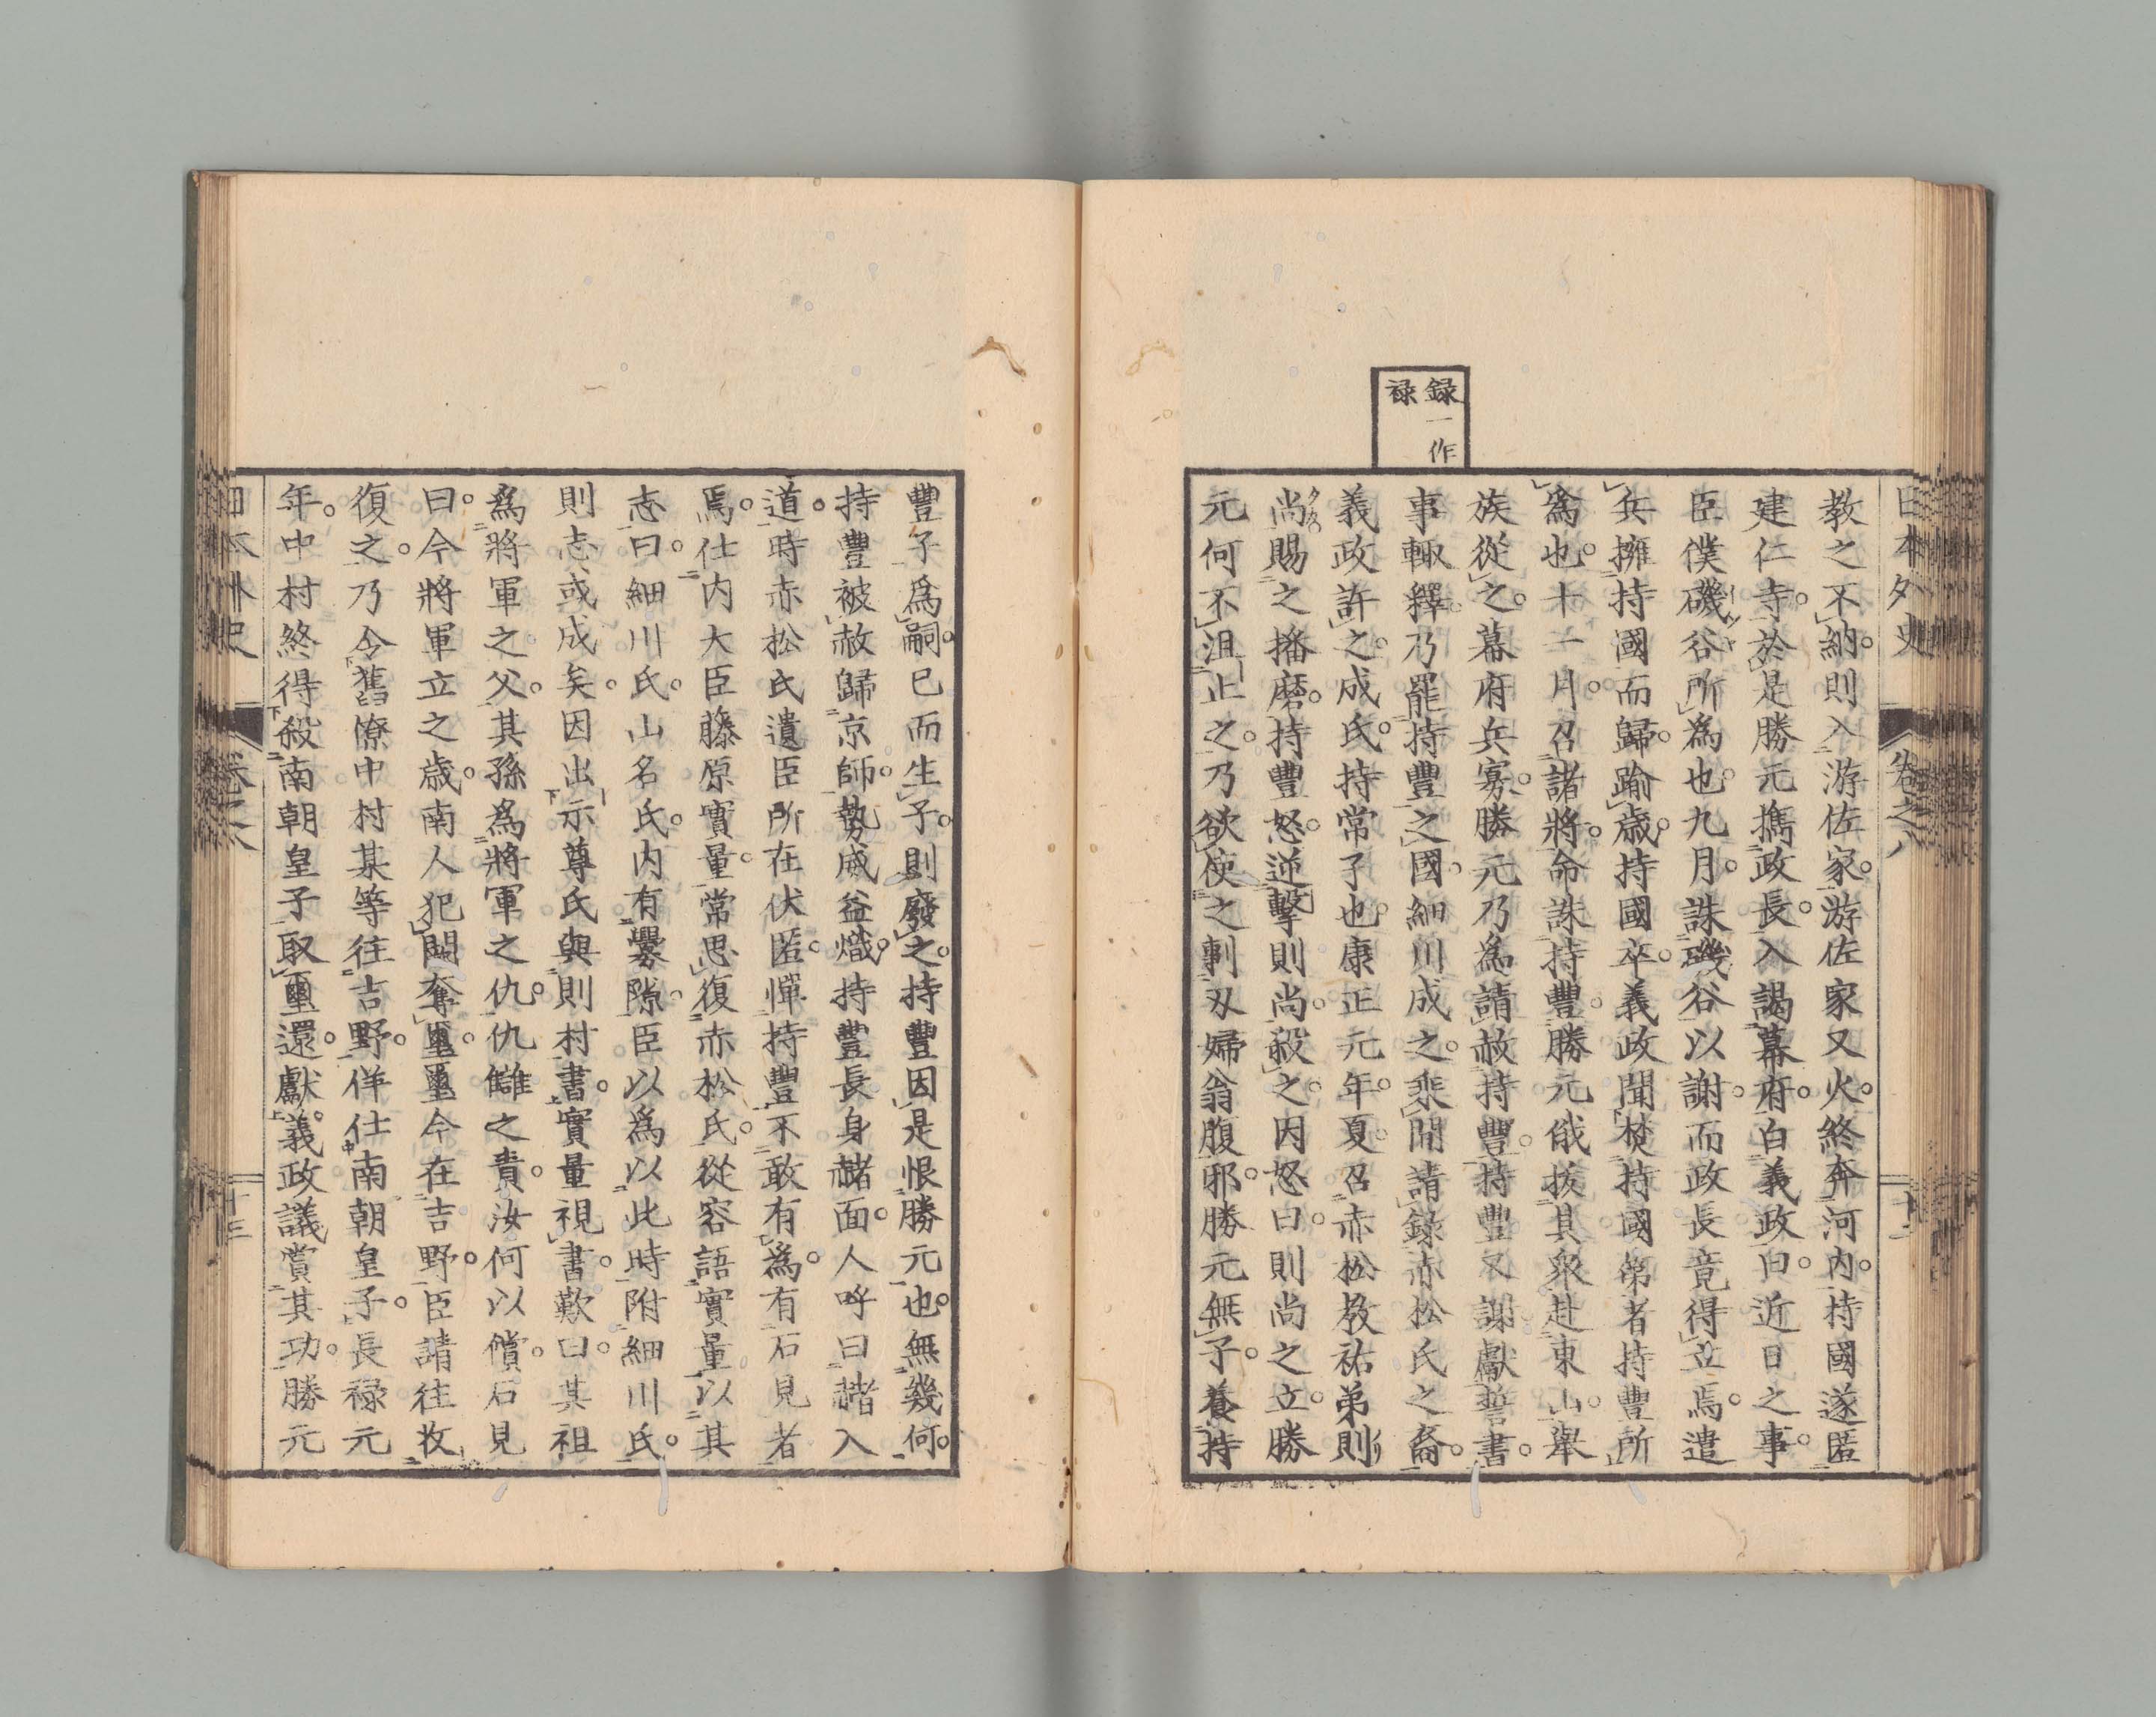 日本外史
卷之八
十二
錄一作
祿
教之不納則入游佐家。游佐家又火。終奔河内。持國遂匿
建仁寺。於是勝元擕政長。入謁幕府。白義政曰。近日之事。
臣僕磯谷所為也。九月。誅磯谷以謝。而政長竟得立焉。遣
兵擁持國而歸。踰歲。持國卒。義政聞焚持國第者持豐所
爲也。十一月。召諸將。命誅持豐。勝元俄拔其衆赴東山。舉
族從之。幕府兵寡。勝元乃爲請赦持豐。持豐又謝獻誓書。
事輙釋。乃罷持豐之國。細川成之乘間請錄赤松氏之裔。
義政許之。成氏。持常子也。康正元年。夏。召赤松教祐弟則
尚。賜之播磨。持豐怒。逆擊則尚。殺之。因怒曰。則尚之立。勝
元何不沮止之。乃欲使之剚刄婦翁腹邪。勝元無子。養持
豐子爲嗣。已而生子。則廢之。持豐因是恨勝元也。無幾何。
持豐被赦歸京師。勢威益熾。持豐長身赭面。人呼曰赭入
道。時赤松氏遺臣所在伏匿。憚持豐。不敢有爲。有石見者
焉。仕内大臣藤原實量。常思復赤松氏。從容語實量以其
志。曰。細川氏。山名氏。内有釁隙。臣以爲以此時附細川氏。
則志或成矣。因出示尊氏與則村書。實量視書。歎曰。其祖
爲將軍之父。其孫爲將軍之仇。仇讎之責。汝何以償。石見
曰。今將軍立之歲。南人犯闕奪璽。璽今在吉野。臣請往收
復之。乃令舊僚中村某等往吉野。佯仕南朝皇子。長祿元
年。中村終得殺南朝皇子。取璽還獻。義政議賞其功。勝元
日本外史
卷之八
十三